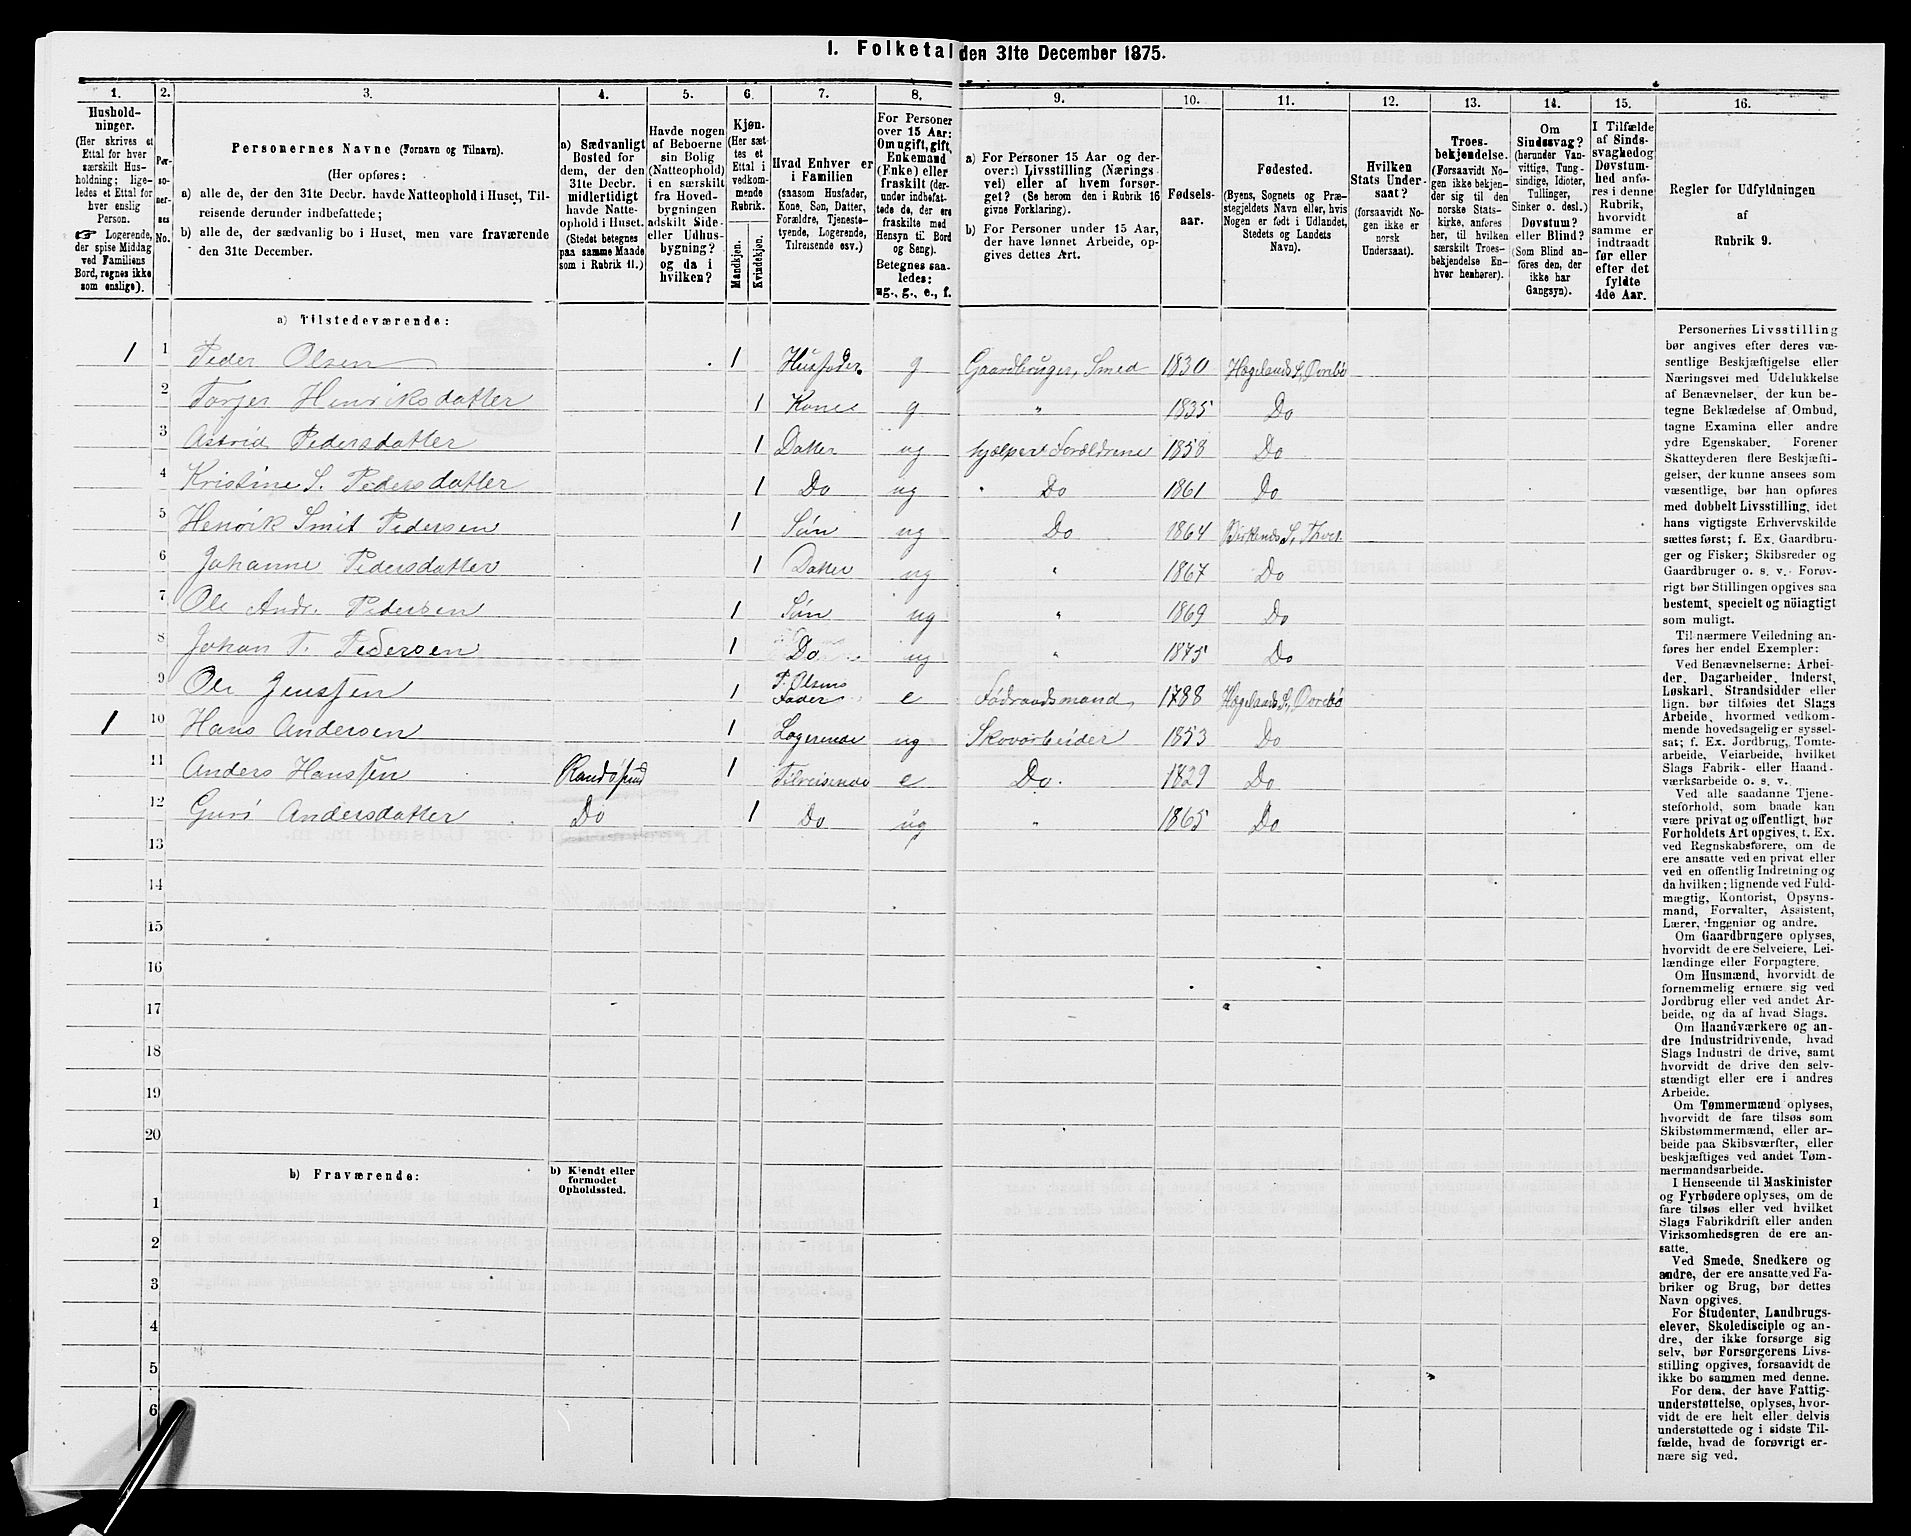 1. Folketal den 31te December 1875.
1. 2. 3. 4. 5. 6. 7. 8. 9. 10. 11. 12. 13. 14. 15. 16.
Hushold-
ninger.
(Her skrives et
Ettal for hver
særskilt Hus-
holdning; lige-
ledes et Ettal for
hver enslig
Person.
☞ Logerende,
der spise Middag
ved Familiens
Bord, regnes ikke
som enslige).
Per-
so-
ner-
nes
No.
Personernes Navne (Fornavn og Tilnavn).
(Her opføres:
a) alle de, der den 31te Decbr. havde Natteophold i Huset, Til-
reisende derunder indbefattede;
b) alle de, der sædvanlig bo i Huset, men vare fraværende
den 31te December.
a) Sædvanligt
Bosted for
dem, der den
31te Decbr.
midlertidigt
havde Natte-
ophold i Huset.
(Stedet betegnes
paa samme Maade
som i Rubrik 11.)
Havde nogen
af Beboerne
sin Bolig
(Natteophold)
i en særskilt
fra Hoved-
bygningen
adskilt Side-
eller Udhus-
bygning?
og da i
hvilken?
Kjøn.
(Her sæt-
tes et
Ettal i
vedkom-
mende
Rubrik.
Mandkjøn.
Kvindekjøn.
Hvad Enhver er
i Familien
(saasom Husfader,
Kone, Søn, Datter,
Forældre, Tjeneste-
tyende, Logerende,
Tilreisende osv.)
For Personer
over 15 Aar:
Om ugift, gift,
Enkemand
(Enke) eller
fraskilt (der-
under indbefat-
tede de, der ere
fraskilte med
Hensyn til Bord
og Seng).
Betegnes saa-
ledes:
ug., g., e., f.
a) For Personer 15 Aar og der-
over:) Livsstilling (Nærings-
vei) eller af hvem forsør-
get? (Se herom den i Rubrik 16
givne Forklaring).
b) For Personer under 15 Aar,
der have lønnet Arbeide, op-
gives dettes Art.
Fødsels-
aar.
Fødested.
(Byens, Sognets og Præ-
stegjeldets Navn eller, hvis
Nogen er født i Udlandet,
Stedets og Landets
Navn).
Hvilken
Stats Under-
saat?
(forsaavidt No-
gen ikke er
norsk
Undersaat).
Troes-
bekjendelse.
(Forsaavidt No-
gen ikke bekjen-
der sig til den
norske Stats-
kirke, anføres
her, til hvilken
særskilt Troes-
bekjendelse En-
hver henhører).
Om
Sindssvag?
(herunder Van-
vittige, Tung-
sindige, Idioter,
Tullinger,
Sinker o. desl.)
Døvstum?
eller Blind?
(Som Blind an-
føres den, der
ikke har
Gangsyn).
I Tilfælde
af Sinds-
svaghed og
Døvstum-
hed anfø-
res i denne
Rubrik,
hvorvidt
samme er
indtraadt
før eller
efter det
fyldte
4de Aar.
Regler for Udfyldningen
af
Rubrik 9.
a) Tilstedeværende:
1 1 Peder Olsen 1 Husfader g Gaardbruger, Smed 1830 Hægelands S, Øvrebø
2 Torjer Henriksdatter 1 Kone g " 1835 Do
3 Astrid Pedersdatter 1 Datter ug hjælper Forældrene 1858 Do
4 Kristine S. Pedersdatter 1 Do ug Do 1861 Do
5 Henrik Smit Pedersen 1 Søn ug Do 1864 Birkenes S, Tvet
6 Johanne Pedersdatter 1 Datter ug " 1867 Do
7 Ole Andr. Pedersen 1 Søn ug " 1869 Do
8 Johan T. Pedersen 1 Do ug " 1875 Do
9 Ole Jenssen 1 P. Olsens Fader e Fødraadsmand 1788 Hægelands S, Øvrebø
1 10 Hans Andersen 1 Logerende ug Skovarbeider 1853 Do
11 Anders Hanssen Randøsund 1 Tilreisende e Do. 1829 Do
12 Guri Andersdatter Do 1 Do ug " 1865 Do
13
14
15
16
17
18
19
20
b) Fraværende:
b) Kjendt eller
formodet
Opholdssted.
1
2
3
4
5
6
Personernes Livsstilling
bør angives efter deres væ-
sentlige Beskjæftigelse eller
Næringsvei med Udelukkelse
af Benævnelser, der kun be-
tegne Beklædelse af Ombud,
tagne Examina eller andre
ydre Egenskaber. Forener
Skatteyderen flere Beskjæfti-
gelser, der kunne ansees som
væsentlige, bør han opføres
med dobbelt Livsstilling, idet
hans vigtigste Erhvervskilde
sættes først; f. Ex. Gaardbru-
ger og Fisker; Skibsreder og
Gaardbruger o. s. v. Forøv-
rigt bør Stillingen opgives saa
bestemt, specielt og nöiagtigt
som muligt.
Til nærmere Veiledning an-
føres her endel Exempler:
Ved Benævnelserne: Arbei-
der, Dagarbeider, Inderst,
Løskarl, Strandsidder eller
lign. bør tilføies det Slags
Arbeide, hvormed vedkom-
mende hovedsagelig er syssel-
sat; f. Ex. Jordbrug, Tomte-
arbeide, Veiarbeide, hvilket
Slags Fabrik- eller Haand-
værksarbeide o. s. v.
Ved alle saadanne Tjene-
steforhold, som baade kan
være privat og offentligt, bør
Forholdets Art opgives, t. Ex.
ved Regnskabsførere, om de
ere ansatte ved en privat eller
ved en offentlig Indretning og
da hvilken; lignende ved Fuld-
mægtig, Kontorist, Opsyns-
mand, Forvalter, Assistent,
Lærer, Ingeniør og andre.
Om Gaardbrugere oplyses,
hvorvidt de ere Selveiere, Lei-
lændinge eller Forpagtere.
Om Husmænd, hvorvidt de
fornemmelig ernære sig ved
Jordbrug eller ved andet Ar-
beide, og da af hvad Slags.
Om Haandværkere og an-
dre Industridrivende, hvad
Slags Industri de drive, samt
hvorvidt de drive den selv-
stændigt eller ere i andres
Arbeide.
Om Tømmermænd oplyses,
hvorvidt de fare tilsøs som
Skibstømmermænd, eller ar-
beide paa Skibsværfter, eller
beskjæftiges ved andet Tøm-
mermandsarbeide.
I Henseende til Maskinister
og Fyrbødere oplyses, om de
fare tilsøs eller ved hvilket
Slags Fabrikdrift eller anden
Virksomhedsgren de ere an-
satte.
Ved Smede, Snedkere og
andre, der ere ansatte ved Fa-
briker og Brug, bør dettes
Navn opgives.
For Studenter, Landbrugs-
elever, Skoledisciple og an-
dre, der ikke forsørge sig
selv, bør Forsørgerens Livs-
stilling opgives, forsaavidt de
ikke bo sammen med denne.
For dem, der have Fattig-
understøttelse, oplyses, hvor-
vidt de ere helt eller delvis
understøttede og i sidste Til-
fælde, hvad de forøvrigt er-
nære sig ved.